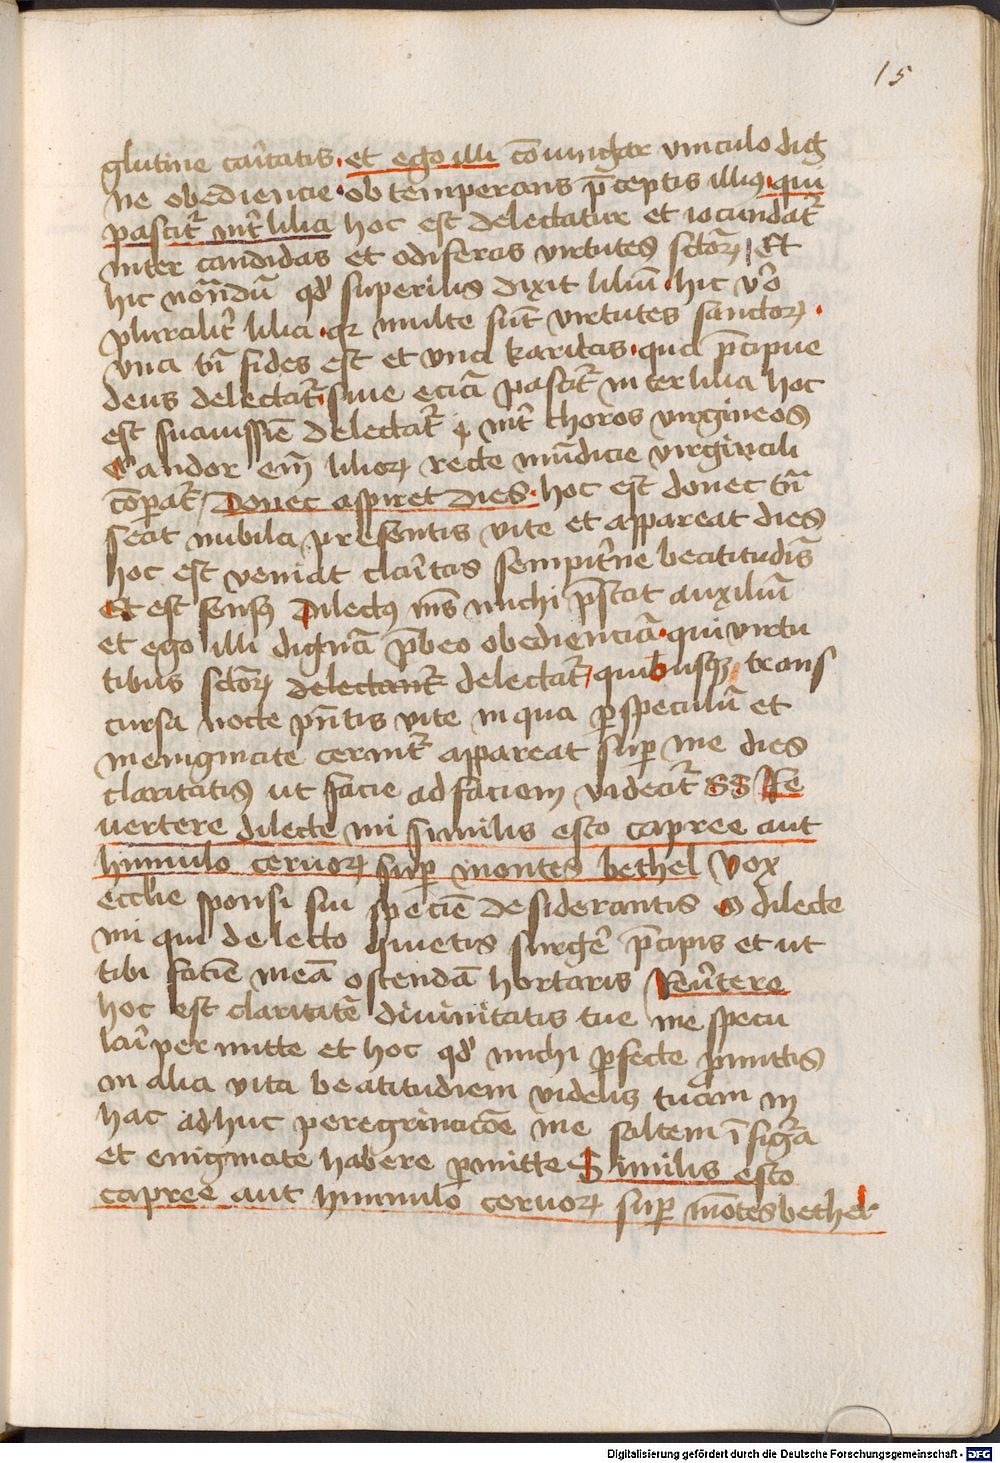 15
glutine caritatis · et ego illi cōiungar vinculo dig
ne obediencie · obtemperans p̄ceptis illius · qui
pascit᷑ int̄ lilia hoc est delectatur et iocundat᷑
inter candidas et odiferas virtutes sctōꝝ Et
hic nōandū qd̓ superius dixit liliū · hic v̓o
pluralit̓ lilia · qꝛ multe sūt virtutes sanctoꝝ ·
vna tn̄ fides est et vna karitas · qua p̄cipue
deus delectat᷑ · siue eciā pascit᷑ inter lilia hoc
est suauissīe delectat᷑ int̄ choros virgineos
Candor em̄ lilioꝝ recte mūdicie virginali
cōpat᷑ Donec aspiret dies · hoc est donec tn̄
seat nubila presentis vite et appareat dies
hoc est veniat claritas sempit̓ne beatitudīs
Et est sensꝰ Dilectꝰ mꝰ michi p̄stat auxiliū
et ego illi dignā p̄beo obedienciā · qui virtu
tibus sctōꝝ delectant᷑ delectat᷑ quibusqꝫ trans
cursa nocte pn̄tis vite in qua ꝑ speculū et
in enigmate cernit᷑ appareat suꝑ me dies
claritatis ut facie ad faciem videat᷑ Re
uertere dilecte mi similis esto capree aut
hinnulo ceruoꝝ suꝑ montes bethel Vox
ecclie sponsi sui speciē desiderantis o dilecte
mi qui de lecto quietis surgē p̄cipis et ut
tibi faciē meā ostendā hortaris Reu̓tere
hoc est claritatē diuinitatis tue me specu
lari permitte et hoc qd̓ michi ꝑfecte ꝓmittis
in alia vita beatitudiem videlis tuam in
hac adhuc peregrinacōe me saltem ī figūa
et enigmate habere ꝑmitte Similis esto
capree aut hinnulo ceruoꝝ suꝑ mōtes bether
Digitalisierung gefördert durch die Deutsche Forschungsgemeinschaft - DFG